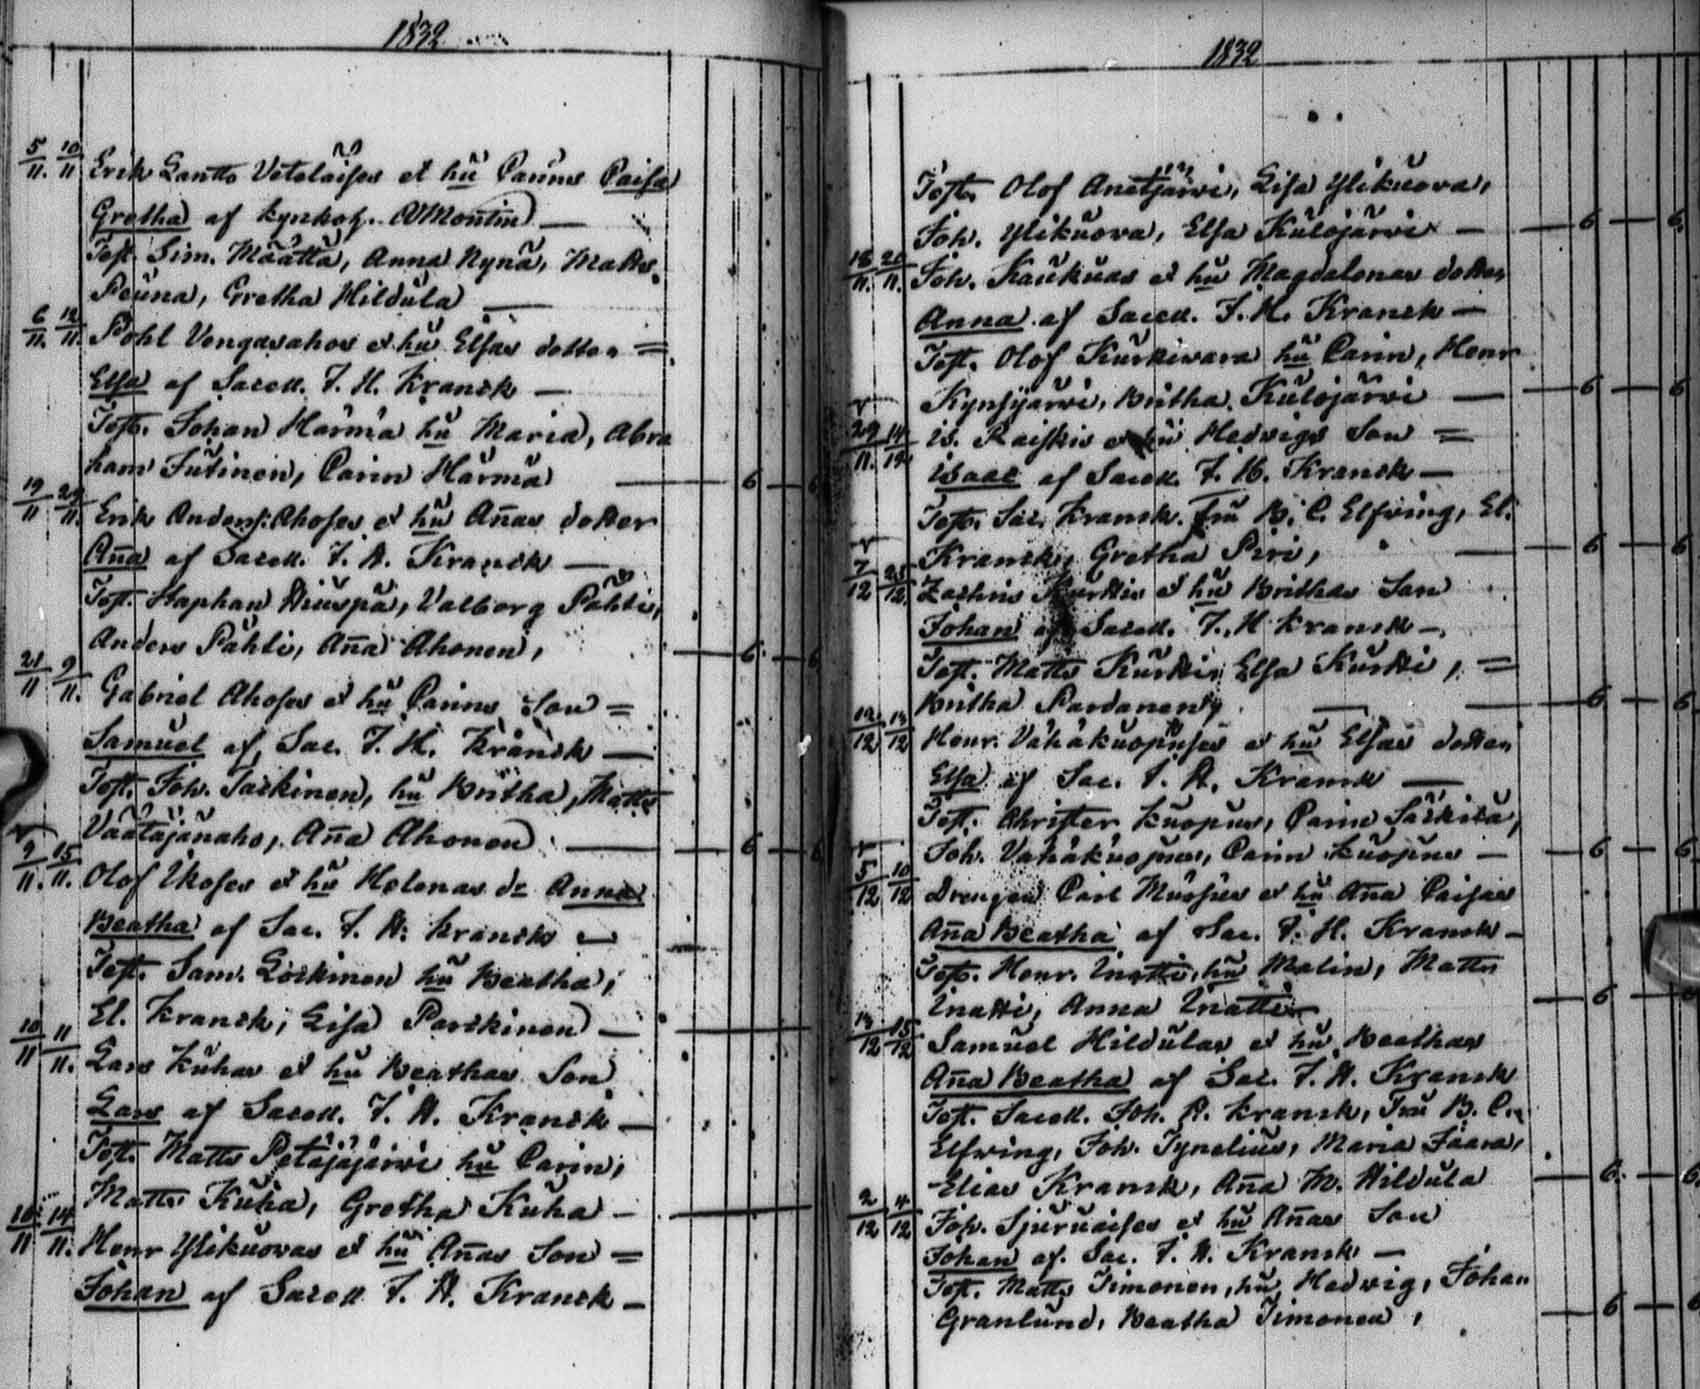 1832
5/11 10/11 Erik Lantto Vetelaises et hũ Carins Caisa
Gretha af kyrkoh. A Montin
Test. Sim. Määttä, Anna Nynä, Matts
Peuna, Gretha Hildula
6/11 12/11 Pohl Vengasahos et hũ Elsas dotter =
Elsa af Sacell. J. H. Kranck —
Test. Johan Härmä hũ Maria, Abra
ham Jutinen, Carin Härmä 6
19/11 Erik Anders: Ahoses et hũ Anas dotter
Ana af Sacell. J. H. Kranck —
Test. Staphan Valborg Pahti,
Anders Pahti, Ana Ahonen, 6
21/11 9/11 Gabriel Ahoses et hũ Carins Son =
Samuel af Sac. J. H. Kranck —
Test. Joh. Taskinen, hũ Britha, Matts
Väätäjänaho, Ana Ahonen 6
9/11 15/11 Olof Ukoses et hũ Helenas dr Anna
Beatha af Sac. J. H. Kranck
Test. Sam. hũ Beatha,
El. Kranck, Lisa Parkinen —
10/11 11/11 Lars Kuhas et hũ Beathas Son
Lars af Sacell. J. H. Kranck —
Test. Matts Petäjäjärvi hũ Carin,
Matts Kuha, Gretha Kuha —
14/11 Henr Ylikuovas et hũ Anas Son =
Johan af Sacell J. H. Kranck —
1832
Test. Olof Anetjärvi, Lisa Ylikuova,
Joh. Ylikuova, Elsa Kulojärvi — 6 — 6
Joh. Kaukuas et hũ Magdalenas dotter
Anna af Sacell. J. H. Kranck —
Test. Olof Kurkivara hũ Carin, Henr
Kynsijärvi, Britha Kulojärvi — 6 — 6
29/11 14/12 Is. Raiskis et hũ Hedvigs Son =
Isaac af Sacell. J. H. Kranck —
Test. Sac. Kranck. Fru B. C. Elfving, El.
Kranck, Gretha Piri, 6 — 6
7/12 Zachris Kurkis et hũ Brithas Son
Johan af Sacell. J. H Kranck —
Test. Matts Kurkki, Elsa Kurkki, =
Britha Pardanen 6 — 6
12/12 13/12 Henr. Vähäkuopuses et hũ Elsas dotter
Elsa af Sac. J. H. Kranck —
Test. Christer Kuopus, Carin Särkilä,
Joh. Vähäkuopus, Carin Kuopus — 6 — 6
5/12 10/12 Drengen Carl et hũ Ana Caisas
Ana Beatha af Sac. J. H. Kranck —
Test. Henr. Inatti, hũ Malin, Matts
Inatti, Anna Inatti 6
13/12 15/12 Samuel Hildulas et hũ Beathas
Ana Beatha af Sac. J. H. Kranck
Test. Sacell. Joh. H. Kranck, Fru B. C.
Elfving, Joh. Tynelius, Maria Jaara,
Elias Kranck, Ana M. Hildula 6 — 6
2/12 4/12 Joh. Sjuruaises et hũ Anas Son
Johan af Sac. J. H. Kranck —
Test. Matts Timonen, hũ Hedvig, Johan
Granlund, Beatha Timonen, 6 — 6